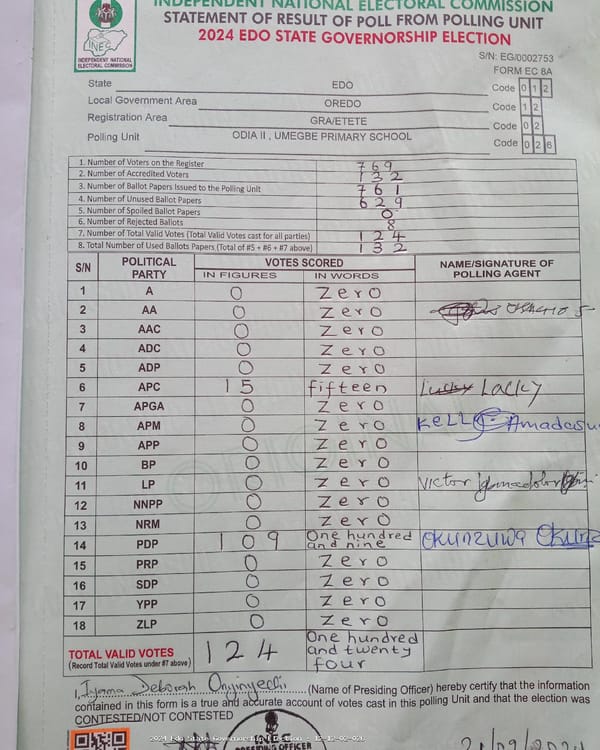 INDEPENDENT NATIONAL ELECTORAL COMMISSION
STATEMENT OF RESULT OF POLL FROM POLLING UNIT
2024 EDO STATE GOVERNORSHIP ELECTION
INEC
INDEPENDENT NATIONAL
ELECTORAL COMMISSION
S/N: EG/0002753
FORM EC 8A
State EDO Code 0 1 2
Local Government Area OREDO Code 1 2
Registration Area GRA/ETETE Code 0 2
Polling Unit ODIA II , UMEGBE PRIMARY SCHOOL Code 0 2 6
1. Number of Voters on the Register 769
2. Number of Accredited Voters 132
3. Number of Ballot Papers Issued to the Polling Unit 761
4. Number of Unused Ballot Papers 629
5. Number of Spoiled Ballot Papers 0
6. Number of Rejected Ballots 8
7. Number of Total Valid Votes (Total Valid Votes cast for all parties) 124
8. Total Number of Used Ballots Papers (Total of #5 + #6 + #7 above) 132
S/N POLITICAL PARTY VOTES SCORED NAME/SIGNATURE OF POLLING AGENT
IN FIGURES IN WORDS
1 A 0 Zero
2 AA 0 Zero
3 AAC 0 Zero
4 ADC 0 Zero
5 ADP 0 Zero
6 APC 15 fifteen Lucky Lacky
7 APGA 0 Zero
8 APM 0 Zero KELLY Amadasu
9 APP 0 Zero
10 BP 0 Zero
11 LP 0 Zero Victor
12 NNPP 0 Zero
13 NRM 0 Zero
14 PDP 109 One hundred and nine Okunzuwa
15 PRP 0 Zero
16 SDP 0 Zero
17 YPP 0 Zero
18 ZLP 0 Zero
TOTAL VALID VOTES 124 One hundred and twenty four
(Record Total Valid Votes under #7 above)
I, Iyama Deborah Onyinyechi (Name of Presiding Officer) hereby certify that the information
contained in this form is a true and accurate account of votes cast in this polling Unit and that the election was
CONTESTED/NOT CONTESTED
PRESIDING OFFICER
2024 Edo State Governorship Election - 12-12-02-026
21/09/2024